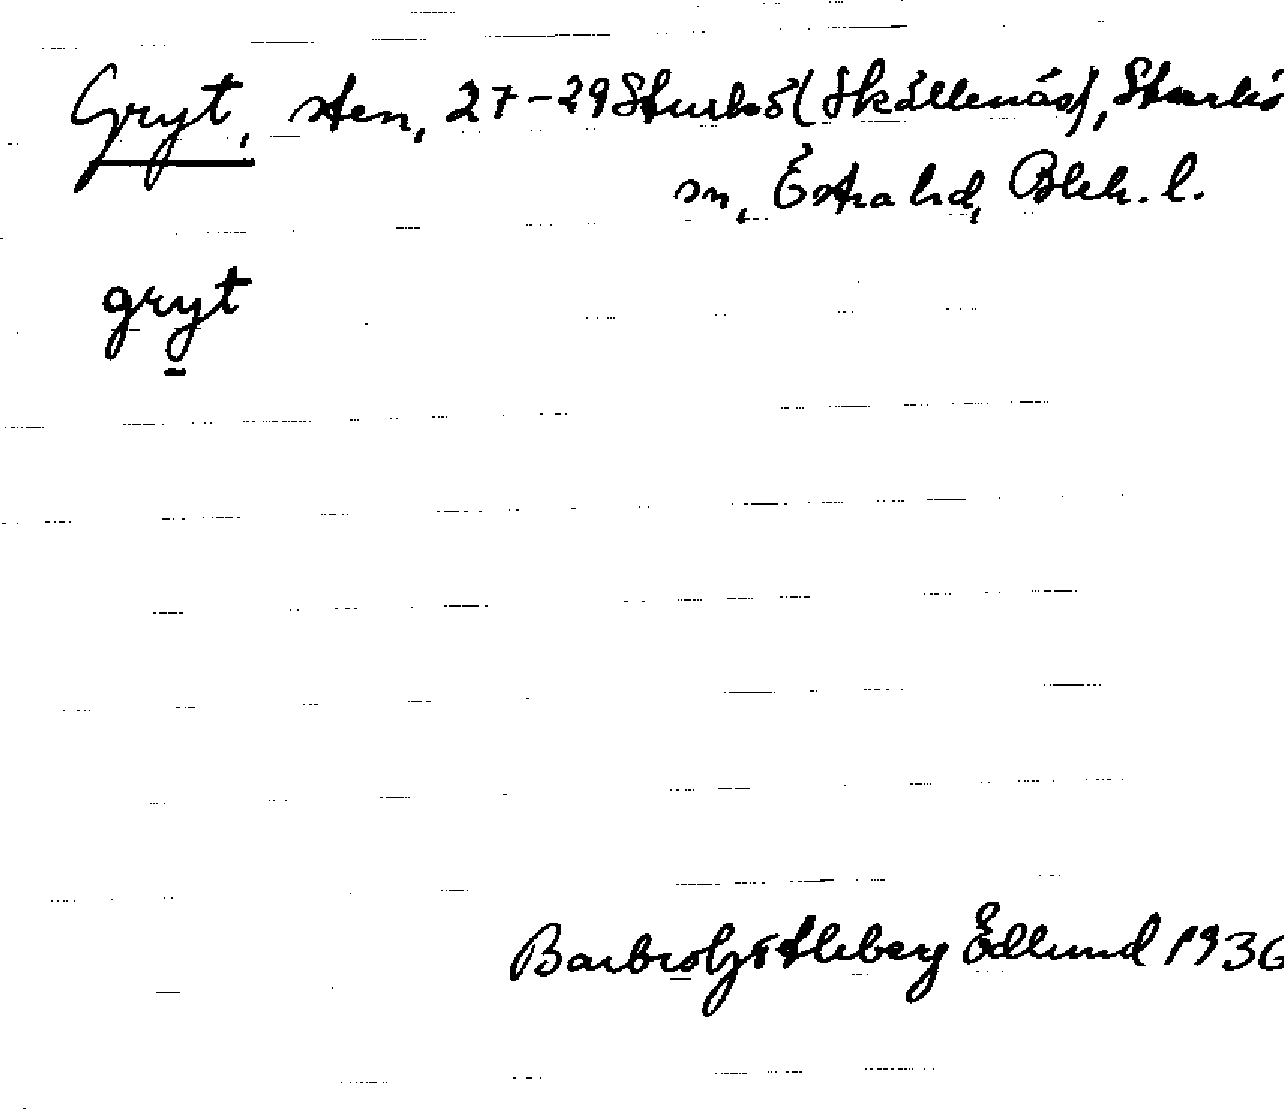 Gryt, sten, 27-29 Sturkö (Skållenäs), Sturkö
sn, Östra hd, Blek. l.
gryt
Barbro Göstleberg Edlund 1936